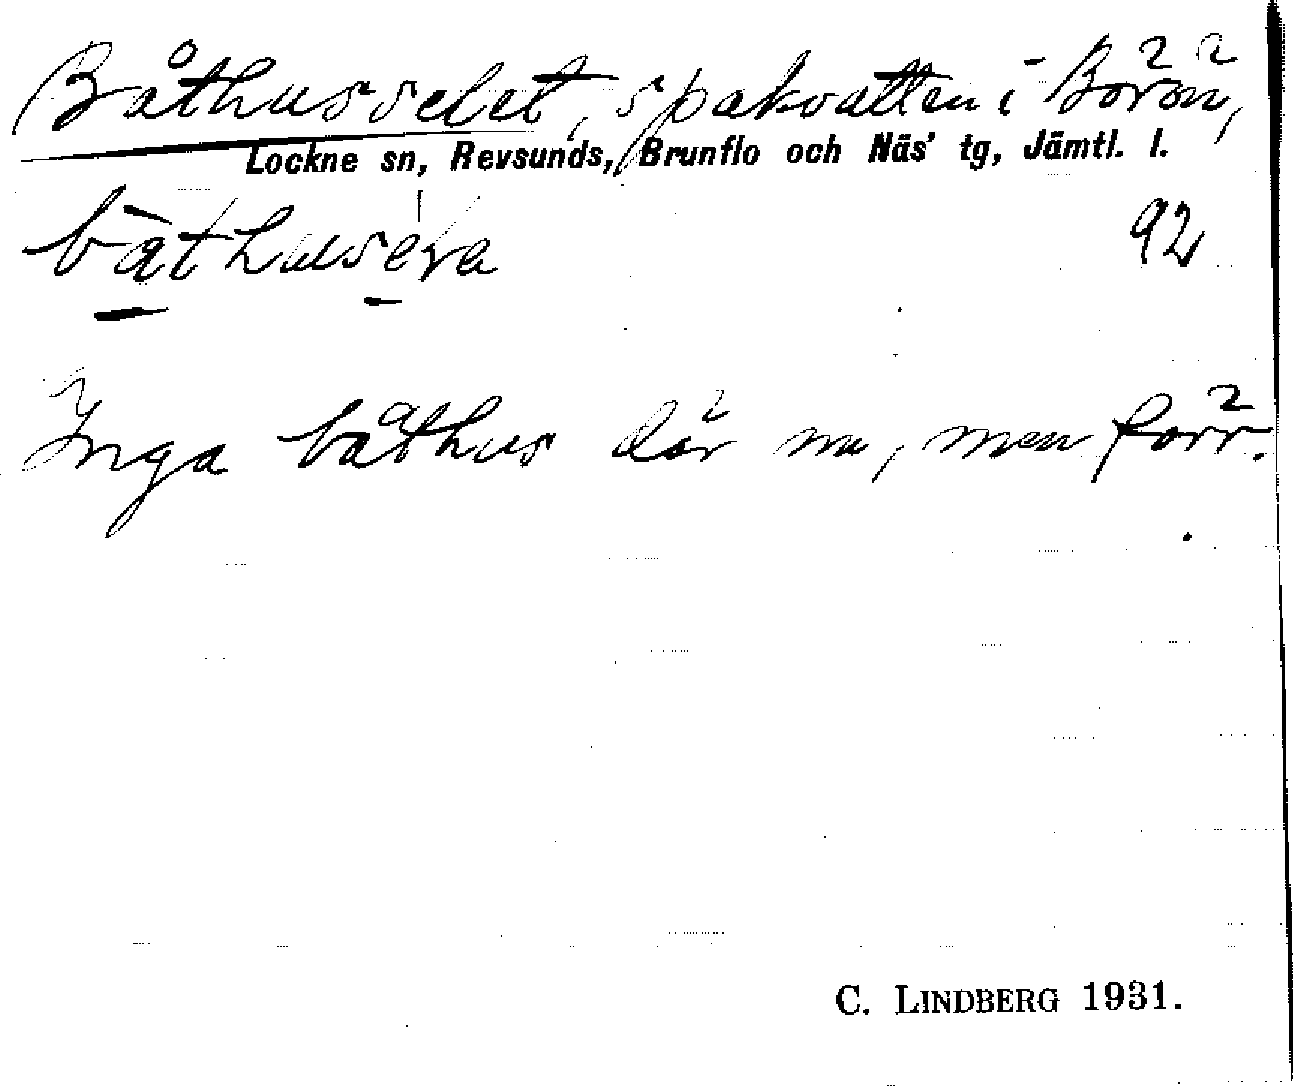 Båthusselet, spakvatten i Börön,
Lockne sn, Revsunds, Brunflo och Näs' tg, Jämtl. l.
92
Inga båthus där nu, men förr.
C. LINDBERG 1931.